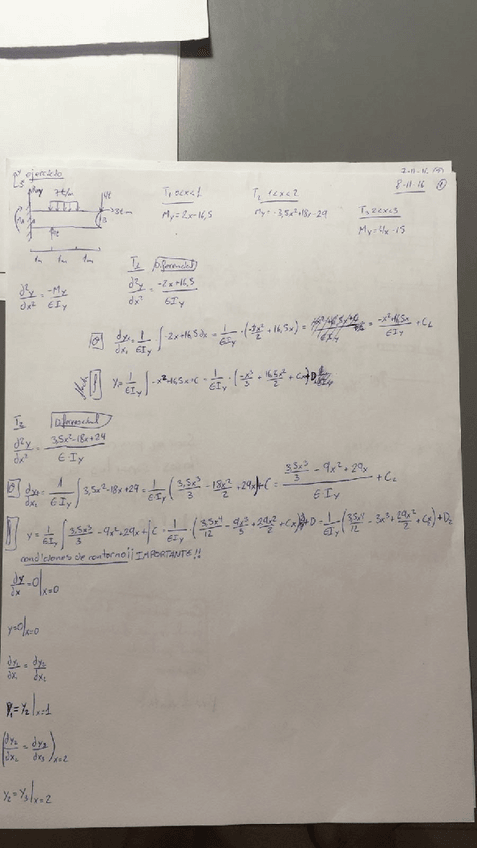 7-11-16
8-11-16 ①
ejercicio
T₁ 0<x<1
T₂ 1<x<2
T₃ 2<x<3
My=2x-16,5
My=-3,5x²+18x-29
My=4x-15
7t/m
4t
3tm
1m 1m 1m
d²y/dx² = -My/EIy
T₁ Diferencial
d²y/dx² = -2x+16,5/EIy
dy₁/dx₁ = 1/EIy ∫ -2x+16,5 dx = 1/EIy · (-2x²/2 + 16,5x) = -x²+16,5x/EIy + C₁
y = 1/EIy ∫ -x²+16,5x+C = 1/EIy · (-x³/3 + 16,5x²/2 + Cx)+D
T₂ Diferencial
d²y/dx² = 3,5x²-18x+29/E·Iy
dy₂/dx₂ = 1/EIy ∫ 3,5x²-18x+29 = 1/EIy (3,5x³/3 - 18x²/2 + 29x)+C = 3,5x³/3 - 9x² + 29x/EIy + C₂
y = 1/EIy ∫ 3,5x³/3 - 9x² + 29x + C = 1/EIy · (3,5x⁴/12 - 9x³/3 + 29x²/2 + Cx)+D = 1/EIy (3,5x⁴/12 - 3x³ + 29x²/2 + Cx)+D₂
condiciones de contorno¡¡ IMPORTANTE!!
dy/dx = 0|x=0
y=0|x=0
dy₁/dx₁ = dy₂/dx₂
y₁=y₂|x=1
(dy₂/dx₂ = dy₃/dx₃)x=2
y₂=y₃|x=2